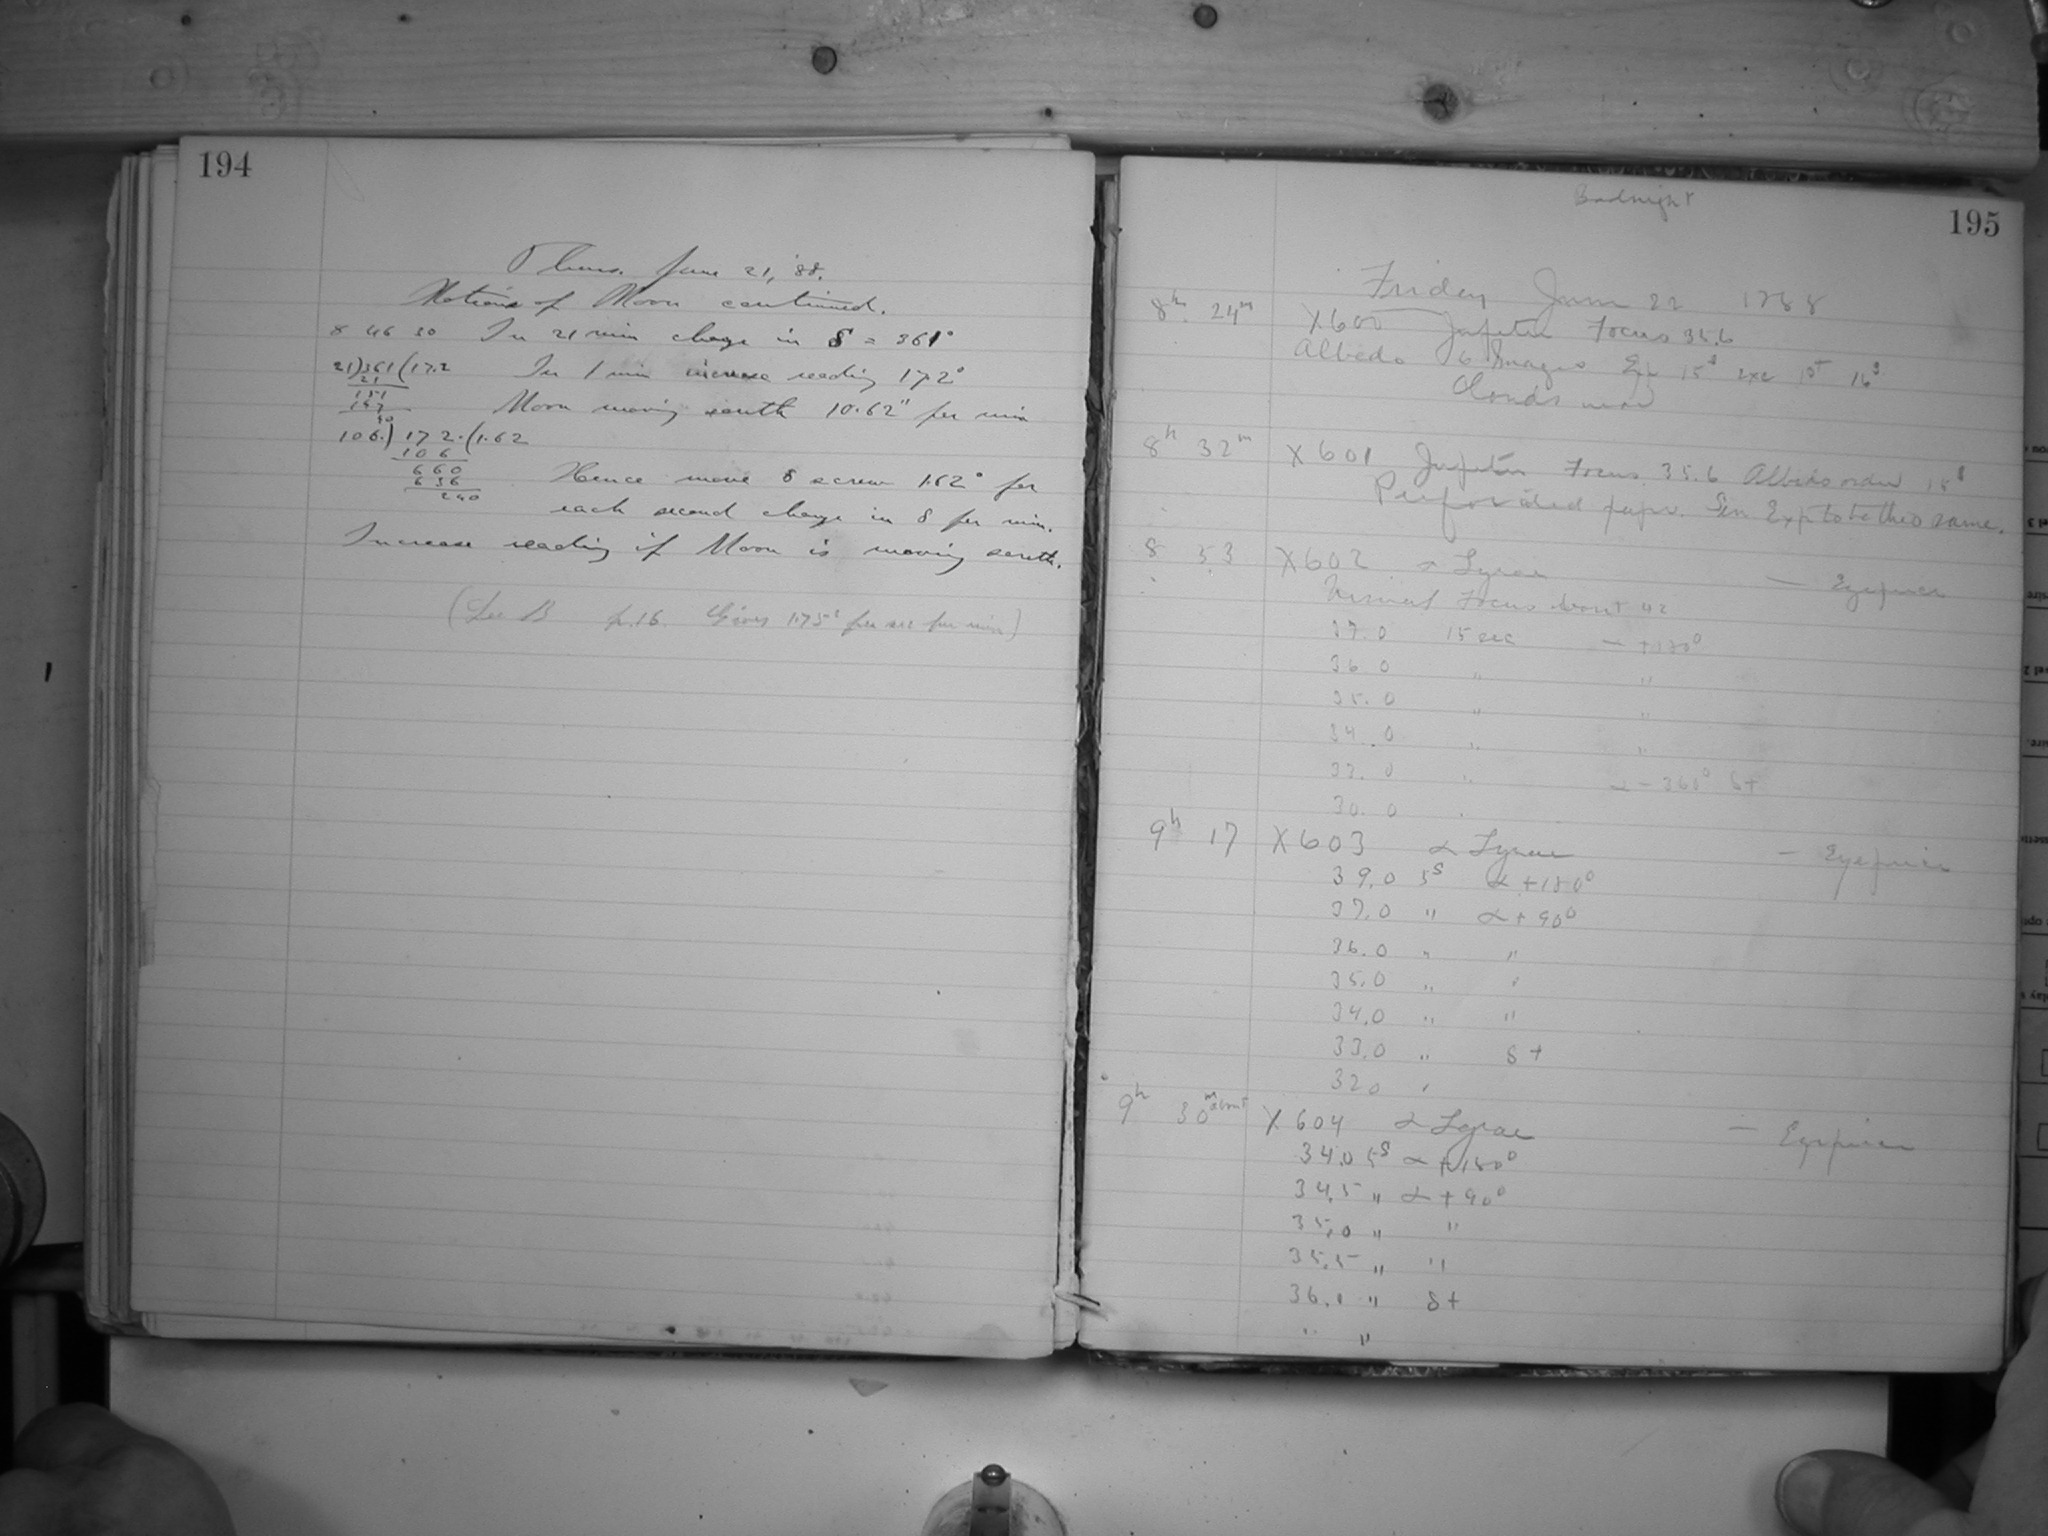 194
Thurs. June 21, '88.
Motions of Moon continued.
8 46 30 In 21 min change in δ = 361°
21)361(17.2 In 1 min increase reading 17.2°
21
151
147 Moon moving south 10.62" per min
40
106.)172.(1.62
106
660 Hence move δ screw 1.62° for
636
240 each second change in δ per min.
Increase reading if Moon is moving south.
(See B p.16. Gives 1.75° per sec per min)
Bad night
195
Friday June 22 1888
8h 24m X600 Jupiter Focus 35.6
Albedo 6 Images Ex 15s 16s
Clouds
8h 32m X601 Jupiter Focus 35.6 Albedo order 15s
Perforated paper. Exp to be the same.
8 53 X602 α Lyrae — Eyepiece
Visual Focus about 42
37.0 15 sec — +180°
36 0 " "
35.0 " "
34.0 " "
33.0 " α - 360° δ+
30.0
9h 17 X603 α Lyrae — Eyepiece
39.0 5s α +180°
37.0 " α + 90°
36.0 " "
35.0 " "
34.0 " "
33.0 " δ +
32 0 "
9h 30m about X604 α Lyrae — Eyepiece
34.0 5s α +180°
34.5 " α + 90°
35.0 " "
35.5 " "
36.0 " δ+
" "